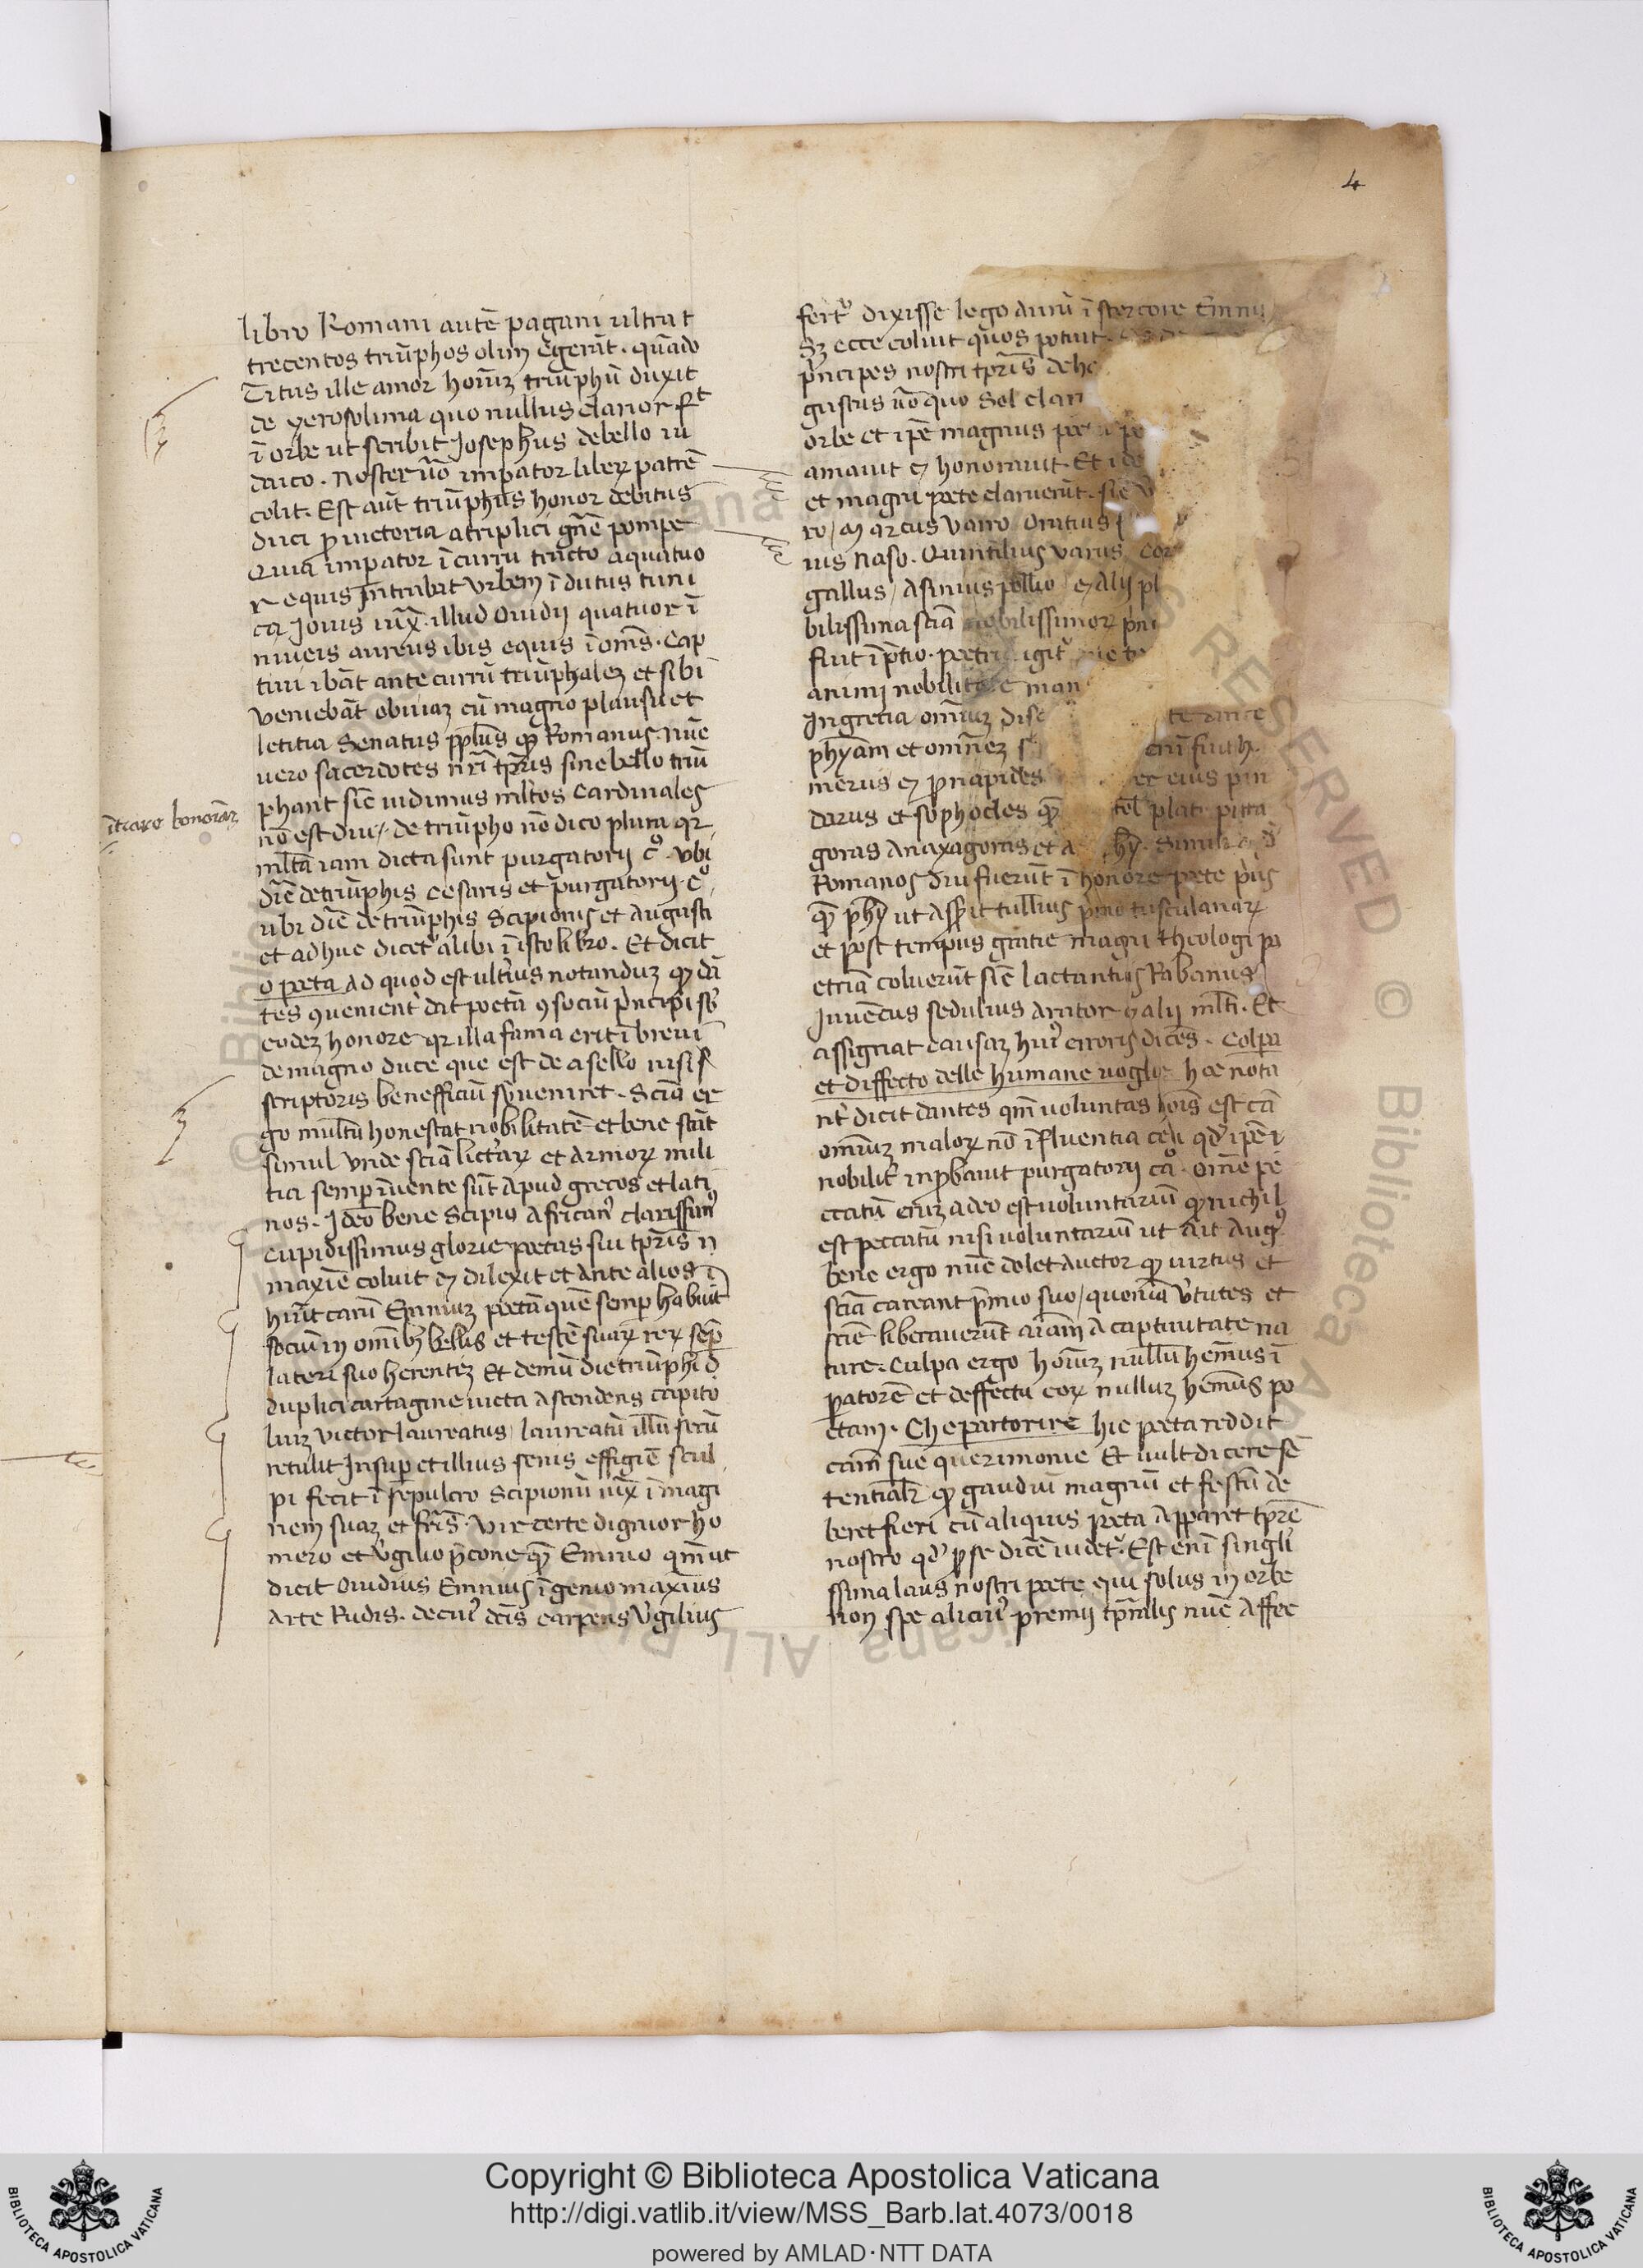 4
libro Romani autē pagani ultra t
trecentos triūphos olim egerūt. quādo
Titus ille amor hoīuz triūphū duxit
de yerosolima quo nullus clarior ft
ī orbe ut scribit Josephus de bello iu
daico. Noster uo īmpator liberꝝ patrē
colit. Est aūt triūphus honor debitus
duci ꝓ uictoria a triplici gn̄e pompe
Quia īmpator ī curru tracto a quatuo
r equis Intrabat urbem īdutus tuni
ca Jouis iux̄. illud Ouidij quatuor ī
niueis aureus ibis equis ī om̄s. Cap
tiui ibāt ante currū triūphalez et sibi
ueniebāt obuiaz cū magno plausu et
letitia Senatus pplūs qꝫ Romanus. nūc
uero sacerdotes nr̄i tp̄ris sine bello triū
phant sic uidimus mltos Cardinales
itraro honorar
nō est diu. de triūpho nō dico plura qr
mlta iam dicta sunt purgatorij cº. ubi
dic̄ de triūphis Cesaris et purgatorij. cº
ubi dic̄ de triūphis Scipionis et Augusti
et adhuc dicet alibi ī isto libro. Et dicit
o poeta ad quod est ulterius notanduz qꝫ dā
tes ꝯuenient dat poetā ꝯsociū pncipi sb
eodez honore qr illa fama erit ī breui
de magno duce que est de asello nisi s
scriptoris benefficiū sꝯueniret. Scīa er
go multū honestat nobilitatē et bene stāt
simul unde scīa lictrarꝝ et armorꝝ mili
tia semper īuente sūt apud grecos et lati
nos. Ideo bene Scipio african' clarissim'
cupidissimus glorie poetas sui tp̄ris ī
maxīe coluit ꝫ dilexit et ante alios ī
huīt carū Enniuz poetā quē semp habuit
sociū in omībꝫ bellis et testē suarꝝ rerꝝ sep
lateri suo herentez Et demū die triūphi d
duplici cartagine uicta ascendens capito
liuz uictor laureatus / laureatū illū secū
retulit Insup et illius senis effigiē scul
pi fecit ī sepulcro Scipionū iux̄ īmagi
nem suaz et fris. Vir certe dignior ho
mero et ūgilio pcone qꝫ Ennio qm̄ ut
dicit Ouidius Ennius īgenio maxīus
Arte Rudis. de cui' dc̄is carpens Ūgilius
fert dixisse lego aurū ī stercore Ennij
Sꝫ ecce coluit quos potuit.
pncipes nostri tp̄ris de he
gustus uo quo Sol clari
orbe et ipē magnus poe
amauit ꝫ honorauit. Et ide
et magni poete claruerūt. sic V
ro / Marcus varro Oratius
ius Naso. Quintilius varus Cor
gallus / Asinius pollio ꝫ Alij pl
bilissima scīa nobilissimorꝝ pni
fuit ī ptio. poetri igit
animi nobilita e man
In grecia omīuz disc te ante
phyam et omnez s eni fuit h.
merus ꝫ prapides et eius pin
darus et sophocles qꝫ tel plat. pitta
goras Anaxagoras et a hy. Simili
Romanos diu fuerūt ī honore poete pius
qꝫ phy ut asserit tullius pmo tusculanarꝝ
et post tempus gratie magni theologi po
etriā coluerūt sic lactantius Rabanus
Juuencus sedulius arator ꝫ alij mlti. Et
assignat causaz hui' erroris dices. Colpa
et diffecto delle humane uoglie hoc nota
nt dicit dantes qm̄ uoluntas hoīs est cā
omīuz malorꝝ nō īfluentia celi qd ipē
nobilit īnpbauit purgatorij cº. Omne pe
ccatū enīz adeo est uoluntariū qꝫ nichil
est peccatū nisi uoluntariū ut ait Aug'
bene ergo nūc dolet auctor qꝫ uirtus et
scīa careant pmio suo / quoniā ūtutes et
scīe liberauerūt aīam a captiuitate na
ture. Culpa ergo hoīuz nullū hēmus ī
patorē et deffectu eorꝝ nulluz hēmus po
etam. Che partorire hic poeta reddit
cām sue querimonie Et uult dicere sē
tentialr qꝫ gaudiū magnū et festū de
beret fieri cū aliquis poeta apparet tp̄re
nostro qd p se dicē uidet. Est eni singli
ssima laus nostri poete qui solus in orbe
non spe alicui' premij tp̄ralis nūc affec
Copyright © Biblioteca Apostolica Vaticana
http://digi.vatlib.it/view/MSS_Barb.lat.4073/0018
powered by AMLAD·NTT DATA
BIBLIOTECA APOSTOLICA VATICANA
BIBLIOTECA APOSTOLICA VATICANA